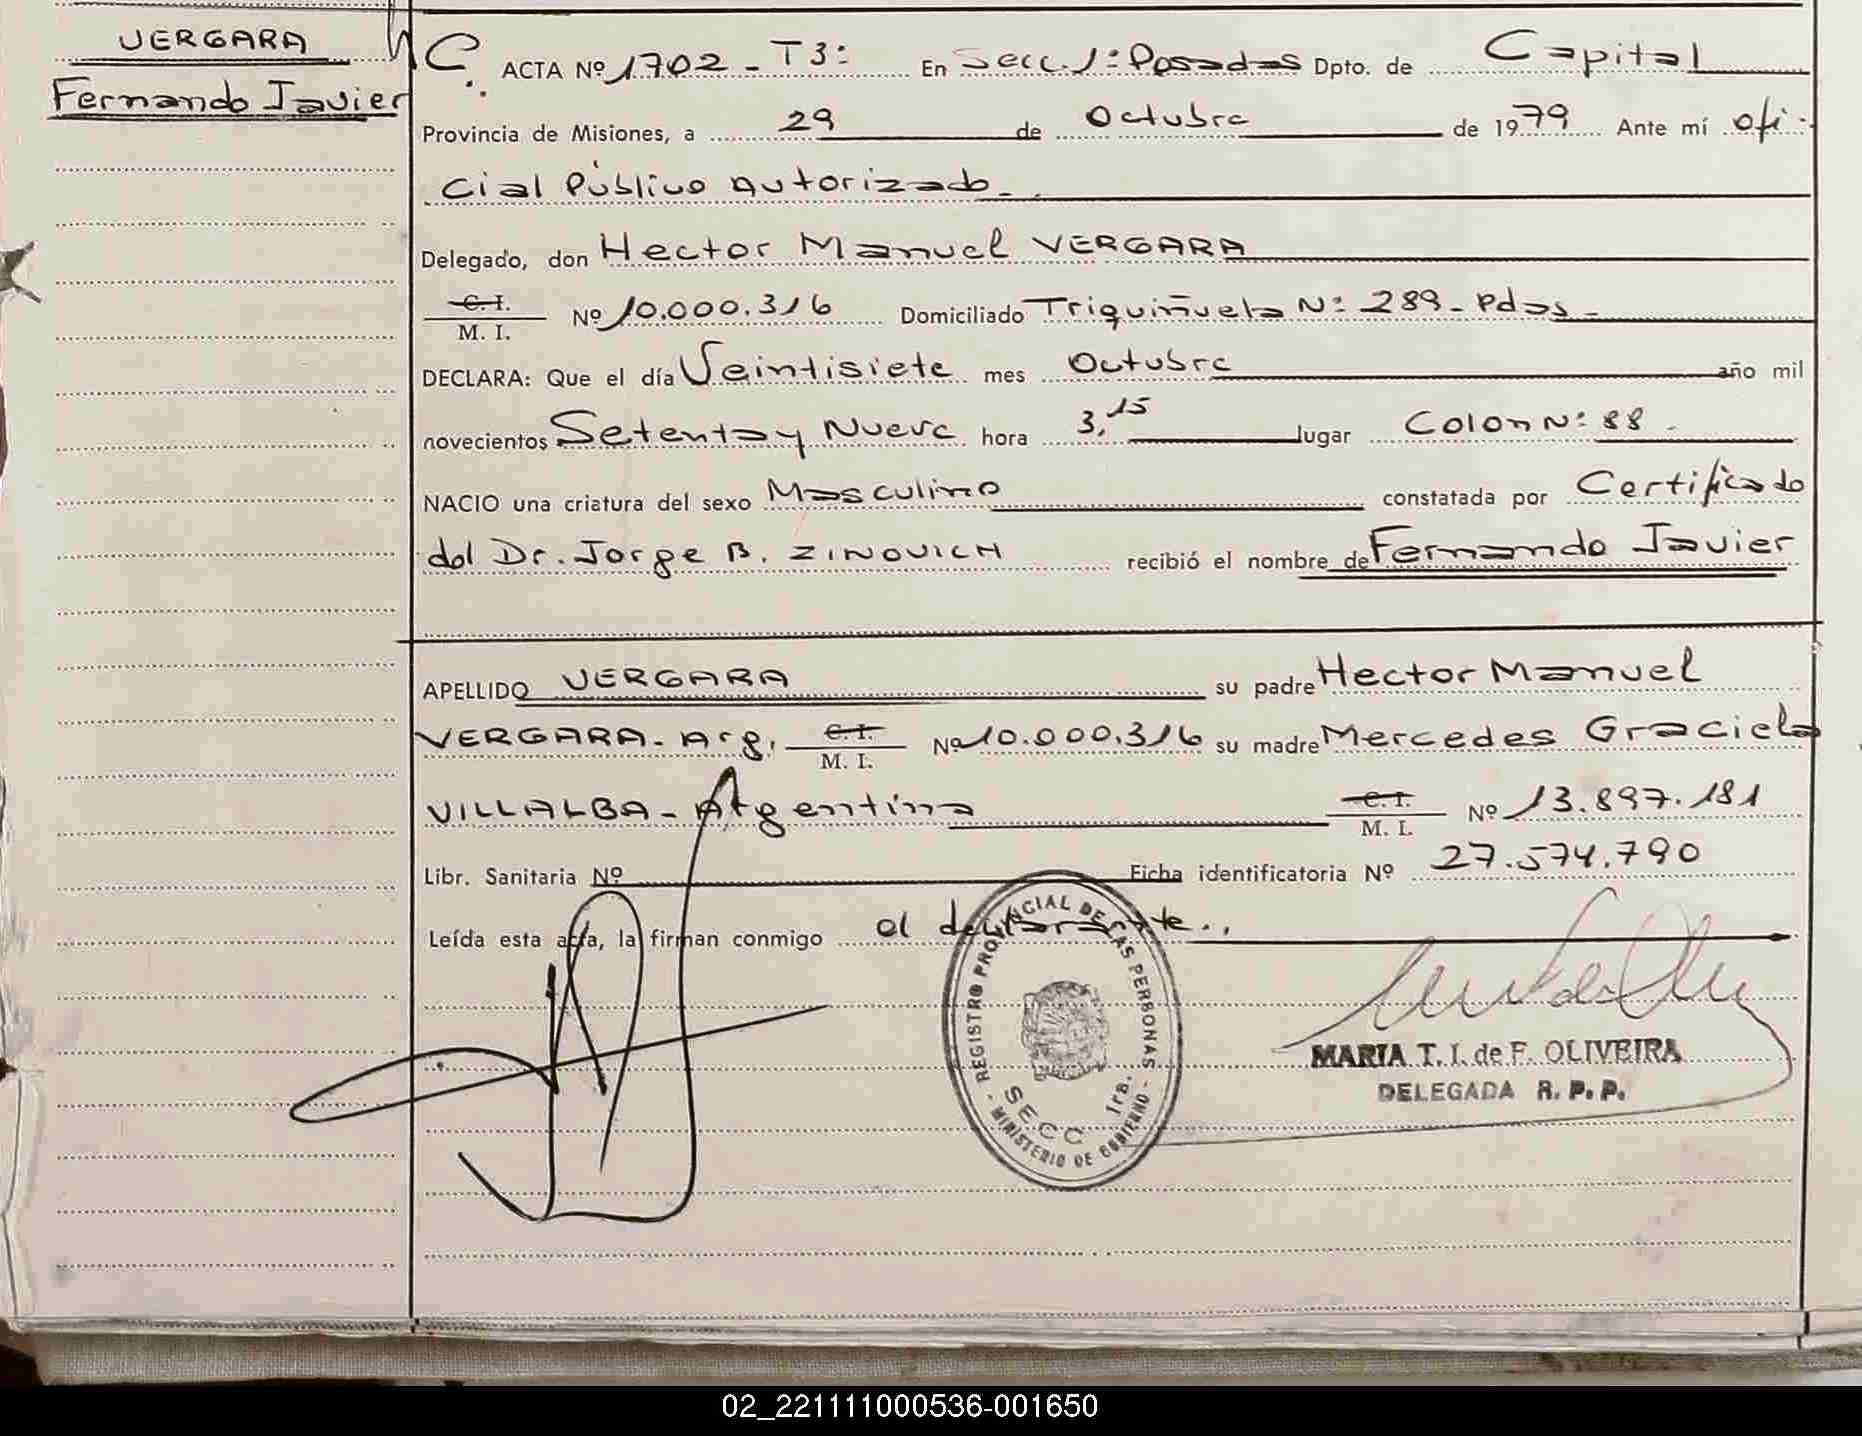 VERGARA
Fernando Javier
C. ACTA Nº 1702 - T3: En Secc. 1º Posadas Dpto. de Capital
Provincia de Misiones, a 29 de Octubre de 1979 Ante mí ofi-
cial Público Autorizado.-
Delegado, don Hector Manuel VERGARA
C. I.
M. I. Nº 10.000.316 Domiciliado Triquiñuela Nº 289 - Pdas -
DECLARA: Que el día Veintisiete mes Octubre año mil
novecientos Setenta y Nueve hora 3,15 lugar Colon Nº 88 -
NACIO una criatura del sexo Masculino constatada por Certificado
del Dr. Jorge B. ZINOVICH recibió el nombre de Fernando Javier
APELLIDO VERGARA su padre Hector Manuel
VERGARA - Arg. C. I. M. I. Nº 10.000.316 su madre Mercedes Graciela
VILLALBA - Argentina C. I. M. I. Nº 13.897.181
Libr. Sanitaria Nº Ficha identificatoria Nº 27.574.790
Leída esta acta, la firman conmigo el declarante.,
REGISTRO PROVINCIAL DE LAS PERSONAS
SECC 1ra.
- MINISTERIO DE GOBIERNO -
MARIA T. I. de F. OLIVEIRA
DELEGADA R. P. P.
02_221111000536-001650